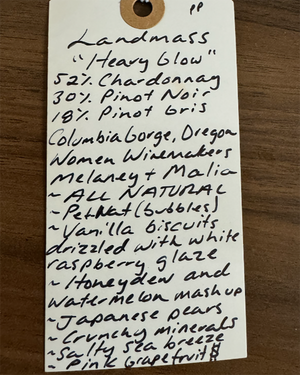 PP
Landmass
"Heavy Glow"
52% Chardonnay
30% Pinot Noir
18% Pinot Gris
Columbia Gorge, Oregon
Women Winemakers
Melaney + Malia
~ ALL NATURAL
~ Pet Nat (bubbles)
~ Vanilla biscuits
drizzled with white
raspberry glaze
~ Honeydew and
watermelon mash up
~ Japanese pears
~ Crunchy minerals
~ Salty sea breeze
~ Pink Grapefruit